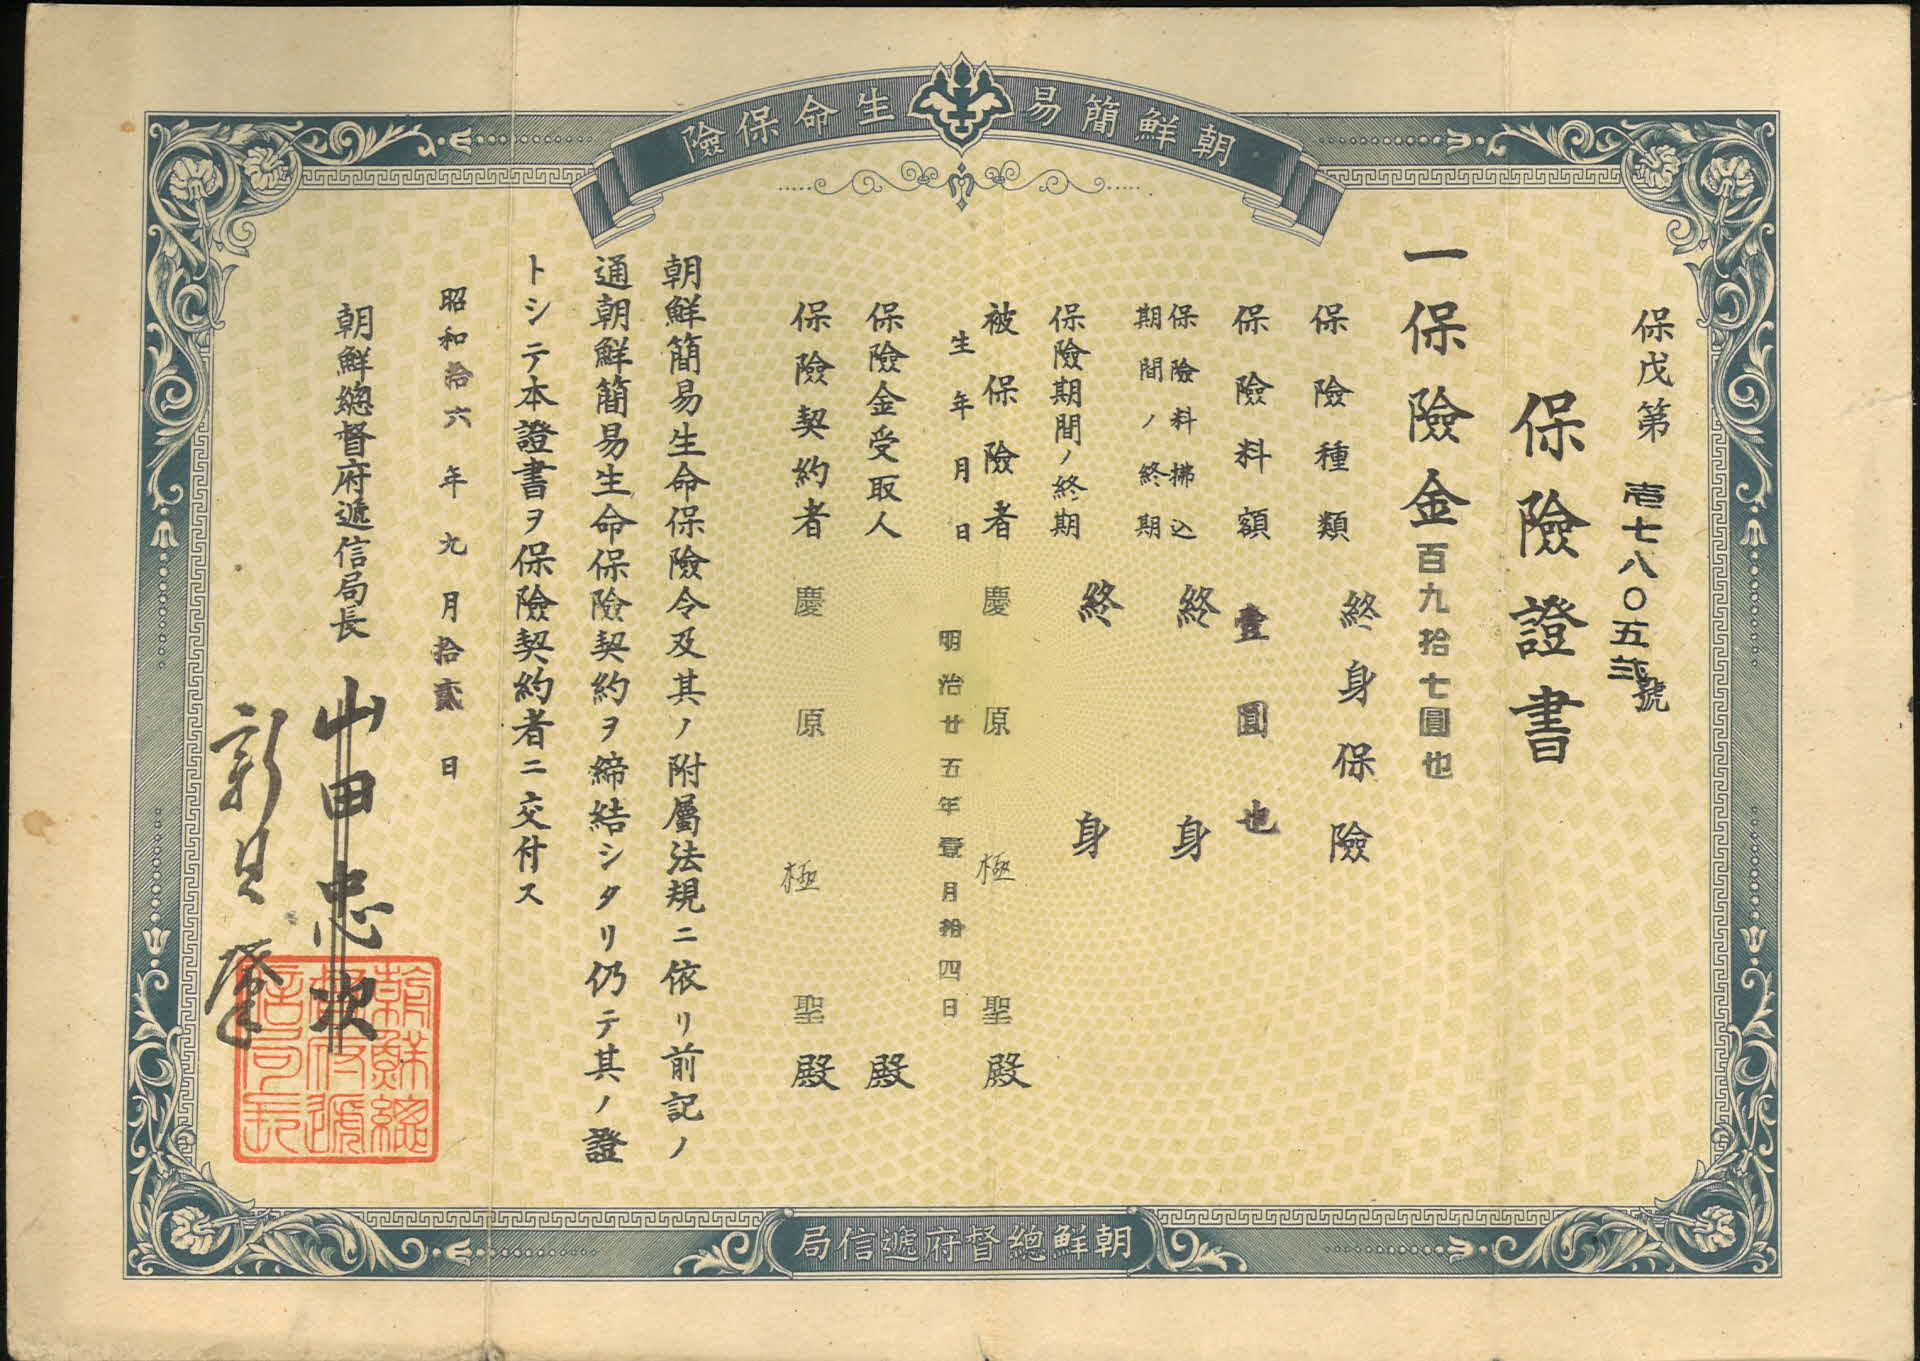 朝鮮簡易生命保險
保戊第壱七八〇五弐號
保險證書
一保險金百九拾七圓也
保險種類 終身保險
保險料額 壹圓也
保險料拂込期間ノ終期 終身
保險期間ノ終期 終身
被保險者 慶原極聖殿
生年月日 明治廿五年壹月拾四日
保險金受取人 殿
保險契約者 慶原極聖殿
朝鮮簡易生命保險令及其ノ附屬法規ニ依リ前記ノ
通朝鮮簡易生命保險契約ヲ締結シタリ仍テ其ノ證
トシテ本證書ヲ保險契約者ニ交付ス
昭和拾六年九月拾貳日
朝鮮總督府遞信局長 山田忠次
新貝肇
朝鮮總督府遞信局長
朝鮮總督府遞信局